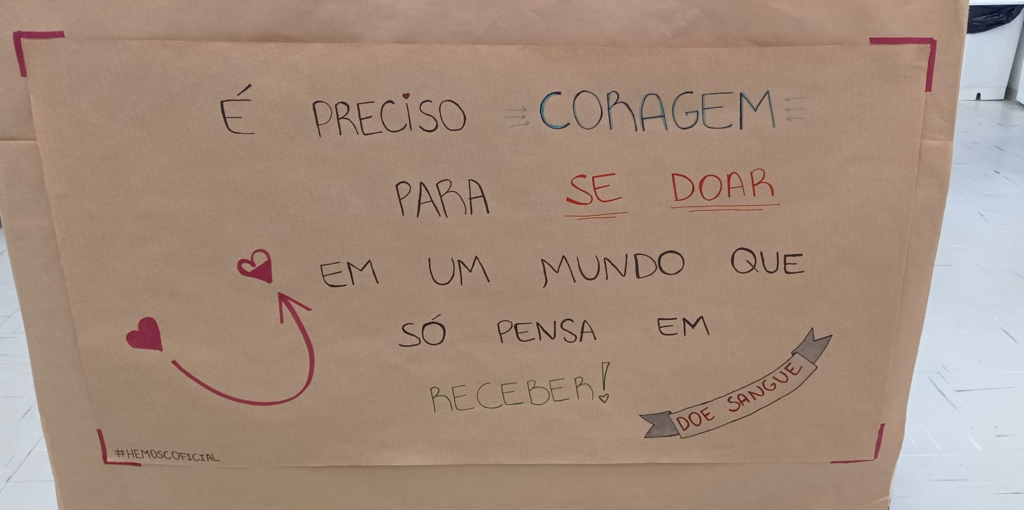 É PRECISO CORAGEM
PARA SE DOAR
EM UM MUNDO QUE
SÓ PENSA EM
RECEBER!
DOE SANGUE
#HEMOSCOFICIAL